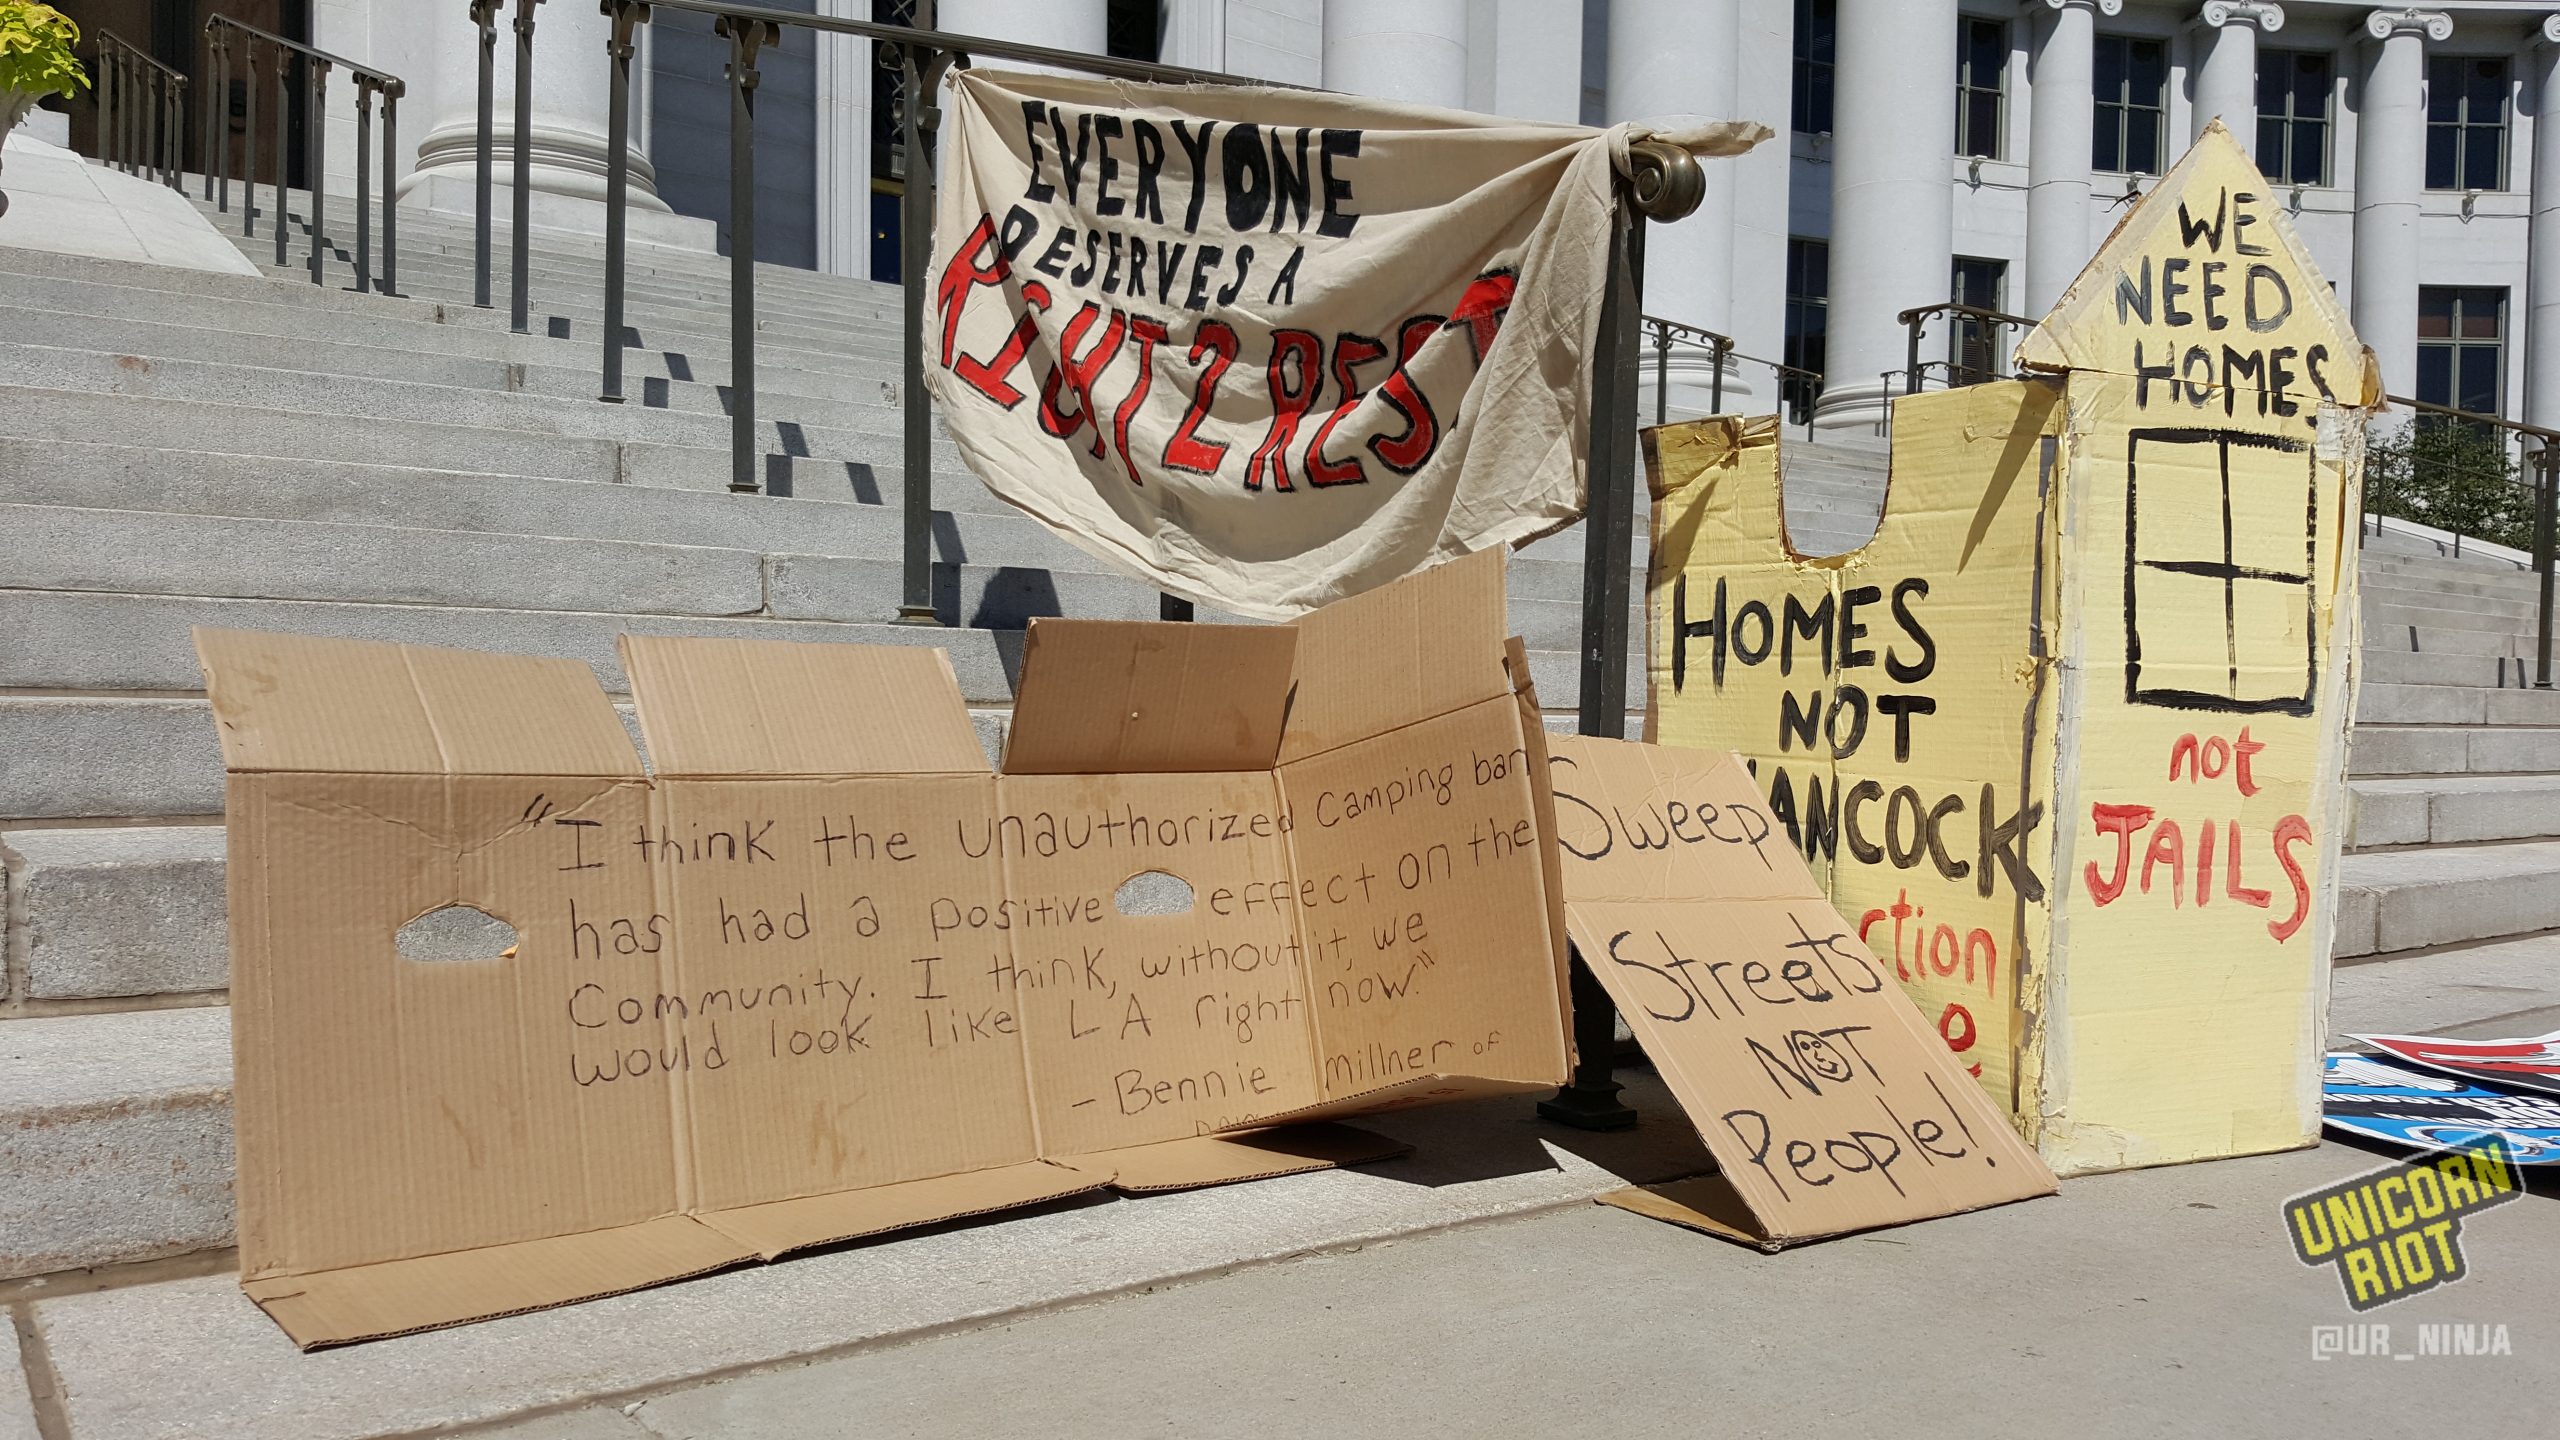 EVERYONE
DESERVES A
RIGHT 2 REST
WE
NEED
HOMES
not
JAILS
HOMES
NOT
HANCOCK
"I think the unauthorized camping ban
has had a positive effect on the
Community. I think, without it, we
would look like LA right now."
- Bennie Millner of
Sweep
Streets
NOT
People!
UNICORN
RIOT
@UR_NINJA